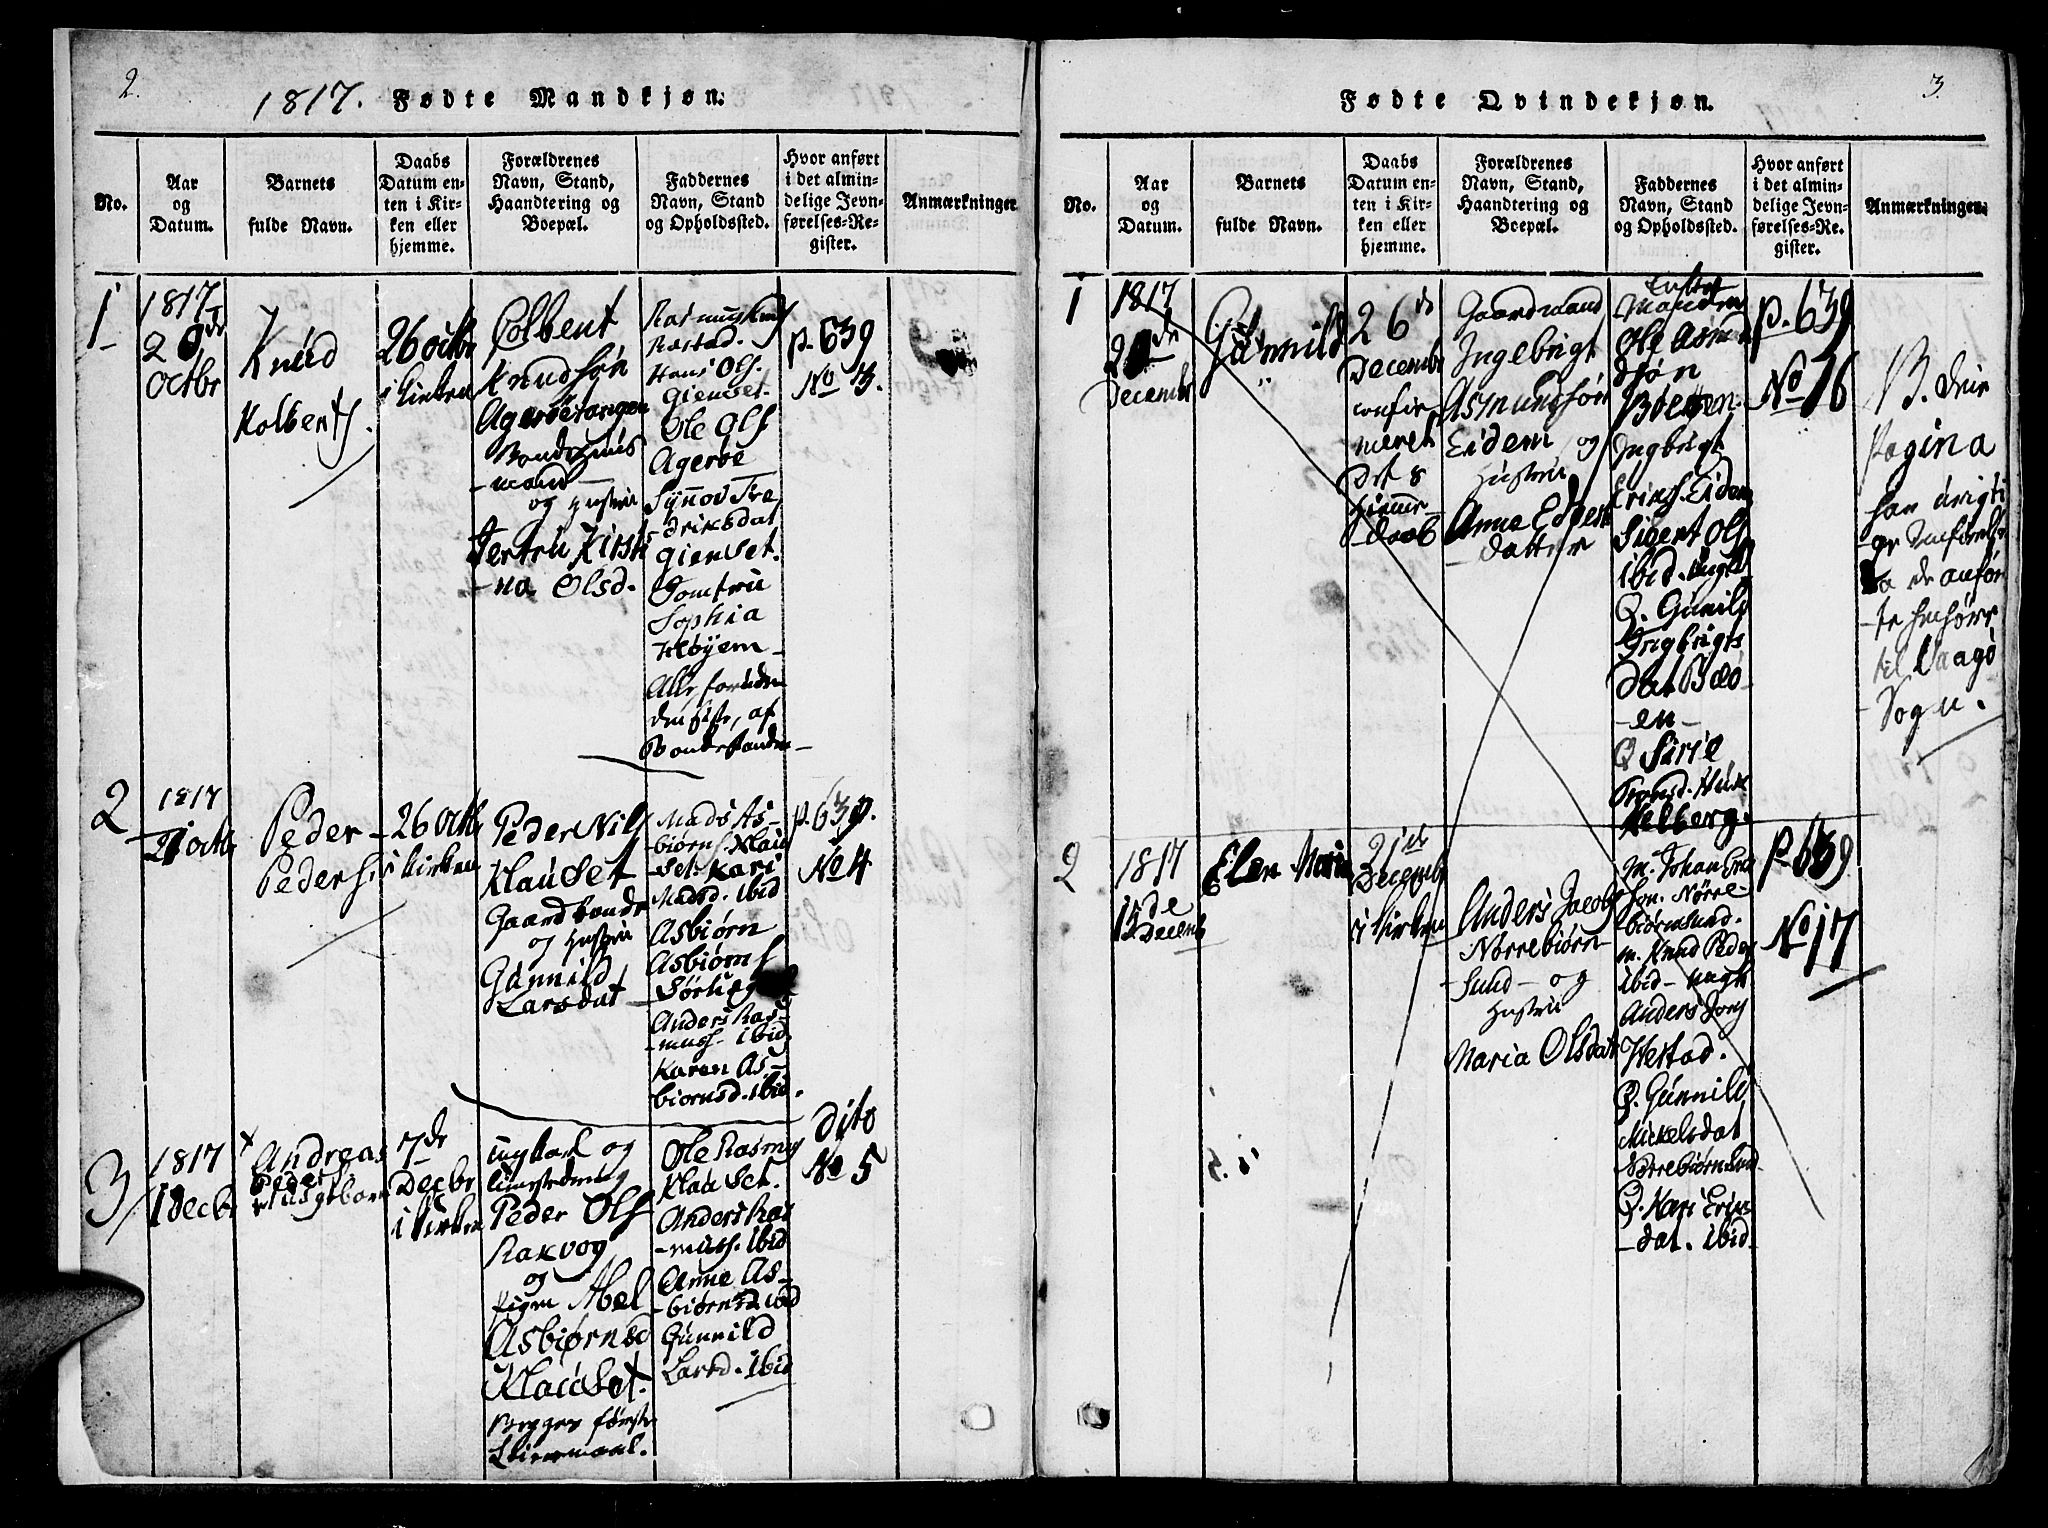 2.
1817. Fødte Mandkjøn.
No.
Aar
og
Datum.
Barnets
fulde Navn.
Daabs
Datum en-
ten i Kir-
ken eller
hjemme.
Forældrenes
Navn, Stand,
Haandtering og
Boepæl.
Faddernes
Navn, Stand
og Opholdssted.
Hvor anført
i det almin-
delige Jevn-
førelses-Re-
gister.
Anmærkninger
1
1817
20de
octbr
Knud
Kolbents.
26 octbr
i kirken
Colbent
Knudsøn
Agerøetangen
Bonde huus
mand
og Hustru
Gertru Kirsti
na Olsd.
Rasmus Knuds
Næstad.
Hans Ols.
Gienset.
Ole Ols
Agerøe
Synnov Fre
driksdat
Gienset.
Jomfru
Sophia
Høyem
Alle, foruden
den sidste, af
Bondestanden
p. 639
No 3.
2
1817
21 octbr
Peder
Peders
26 octb
i kirken
Peder Nils
Klauset
Gaardbonde
og Hustru
Gunnild
Larsdat
Mads As-
biørns. Klau
set. Kari
Madsd. ibid
Asbiørn
Asbiørns
Anders Ras-
mus. ibid
Karen As-
biornsd. ibid.
p. 639.
No 4
3
1817
1 Decbr
Andreas
Peder
7de
Decbr
i kirken
ungkarl og
Peder Ols
Rakvog
og
Pigen Abel
Asbiørnsd
Klauset.
Begges første
Leiermaal.
Ole Rasmus
Klauset.
Anders Ras
mus. ibid
Anne As-
biørnsd ibid
Gunnild
Larsd. ibid
dito
No 5
3.
Fødte Qvindekjøn.
No.
Aar
og
Datum.
Barnets
fulde Navn.
Daabs
Datum en-
ten i Kir-
ken eller
hjemme.
Forældrenes
Navn, Stand,
Haandtering og
Boepæl.
Faddernes
Navn, Stand
og Opholdssted.
Hvor anført
i det almin-
delige Jevn-
førelses-Re-
gister.
Anmærkninger.
1
1817
de
December
Gunnild
26de
Decembr
confir
meret
Det s
Hiemme
daab
Gaardmand
Ingebrigt
Asmundsøn
Eidem og
Hustru
Anne Edvert
datter
Ole Asmun
dsøn
Ingbrigt
Erichs. Eidem
Sivert Ols
ibid. ungk
Q. Gunild
Ingbrigts
dat Bæø
en
Q Sirie
p. 639
No 16
Denne
Pagina
har urigti
ge
da de anfør
te henhøre
til Vaagø
Sogn.
2
1817
15de
Decemb
Elen Maria
21de
Decembr
i kirken
Anders Jacobs
Norrebiørn
sund og
Hustru
Maria Olsdat
m. Johan
søn. Nørre-
biørnsund.
m. Knud Peder
ibid ungk
Anders
Hestad.
Q. Gunnild
Mickelsdat
Nørrebiørnsund
Q. Kari
dat. ibid
p. 639
No 17